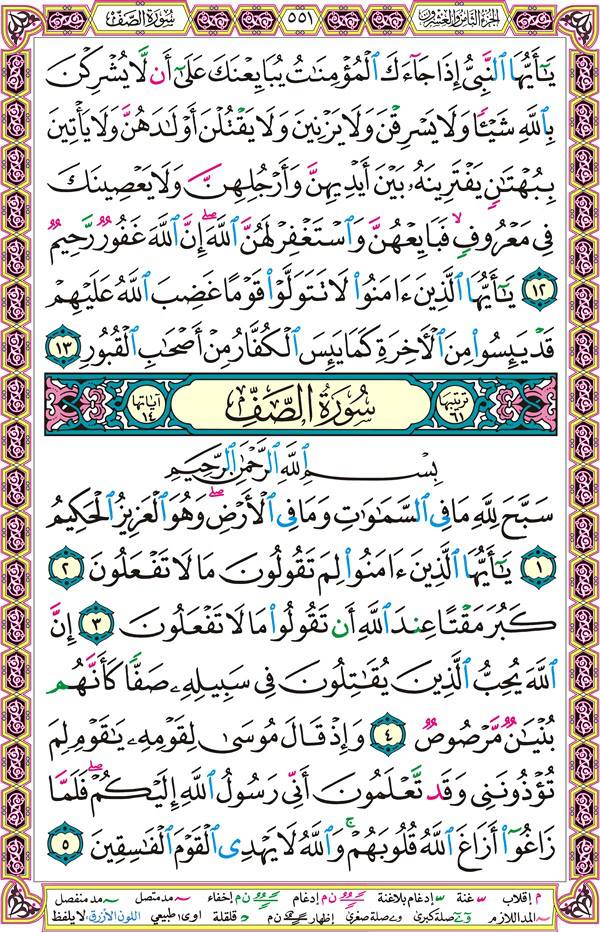 الجزء الثامن والعشرون
٥٥١
سورة الصف
يَـٰٓأَيُّهَا ٱلنَّبِىُّ إِذَا جَآءَكَ ٱلْمُؤْمِنَـٰتُ يُبَايِعْنَكَ عَلَىٰٓ أَن لَّا يُشْرِكْنَ
بِٱللَّهِ شَيْـًٔا وَلَا يَسْرِقْنَ وَلَا يَزْنِينَ وَلَا يَقْتُلْنَ أَوْلَـٰدَهُنَّ وَلَا يَأْتِينَ
بِبُهْتَـٰنٍ يَفْتَرِينَهُۥ بَيْنَ أَيْدِيهِنَّ وَأَرْجُلِهِنَّ وَلَا يَعْصِينَكَ
فِى مَعْرُوفٍ ۙ فَبَايِعْهُنَّ وَٱسْتَغْفِرْ لَهُنَّ ٱللَّهَ ۖ إِنَّ ٱللَّهَ غَفُورٌ رَّحِيمٌ
١٢ يَـٰٓأَيُّهَا ٱلَّذِينَ ءَامَنُوا۟ لَا تَتَوَلَّوْا۟ قَوْمًا غَضِبَ ٱللَّهُ عَلَيْهِمْ
قَدْ يَئِسُوا۟ مِنَ ٱلْـَٔاخِرَةِ كَمَا يَئِسَ ٱلْكُفَّارُ مِنْ أَصْحَـٰبِ ٱلْقُبُورِ ١٣
ترتيبها ٦١ سُورَةُ الصَّفِّ آياتها ١٤
بِسْمِ ٱللَّهِ ٱلرَّحْمَـٰنِ ٱلرَّحِيمِ
سَبَّحَ لِلَّهِ مَا فِى ٱلسَّمَـٰوَٰتِ وَمَا فِى ٱلْأَرْضِ ۖ وَهُوَ ٱلْعَزِيزُ ٱلْحَكِيمُ
١ يَـٰٓأَيُّهَا ٱلَّذِينَ ءَامَنُوا۟ لِمَ تَقُولُونَ مَا لَا تَفْعَلُونَ ٢
كَبُرَ مَقْتًا عِندَ ٱللَّهِ أَن تَقُولُوا۟ مَا لَا تَفْعَلُونَ ٣ إِنَّ
ٱللَّهَ يُحِبُّ ٱلَّذِينَ يُقَـٰتِلُونَ فِى سَبِيلِهِۦ صَفًّا كَأَنَّهُم
بُنْيَـٰنٌ مَّرْصُوصٌ ٤ وَإِذْ قَالَ مُوسَىٰ لِقَوْمِهِۦ يَـٰقَوْمِ لِمَ
تُؤْذُونَنِى وَقَد تَّعْلَمُونَ أَنِّى رَسُولُ ٱللَّهِ إِلَيْكُمْ ۖ فَلَمَّا
زَاغُوٓا۟ أَزَاغَ ٱللَّهُ قُلُوبَهُمْ ۚ وَٱللَّهُ لَا يَهْدِى ٱلْقَوْمَ ٱلْفَـٰسِقِينَ ٥
م إقلاب غنة إدغام بلاغنة ن م إدغام ن م إخفاء مد متصل مد منفصل
المد اللازم صلة كبرى صلة صغرى إظهار ن م قلقلة اوى طبيعي اللون الأزرق: لا يلفظ